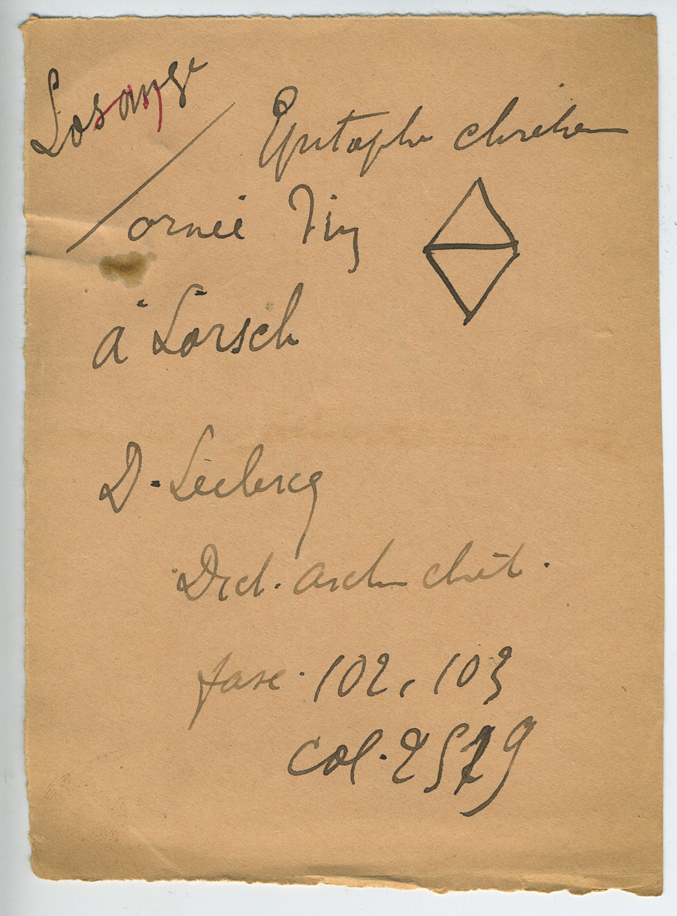 Losange
Epitaphe chrétien
ornée d'un
à Lorsch
D. Leclercq
Dict. arch chrét.
fasc. 102, 103
col. 2519